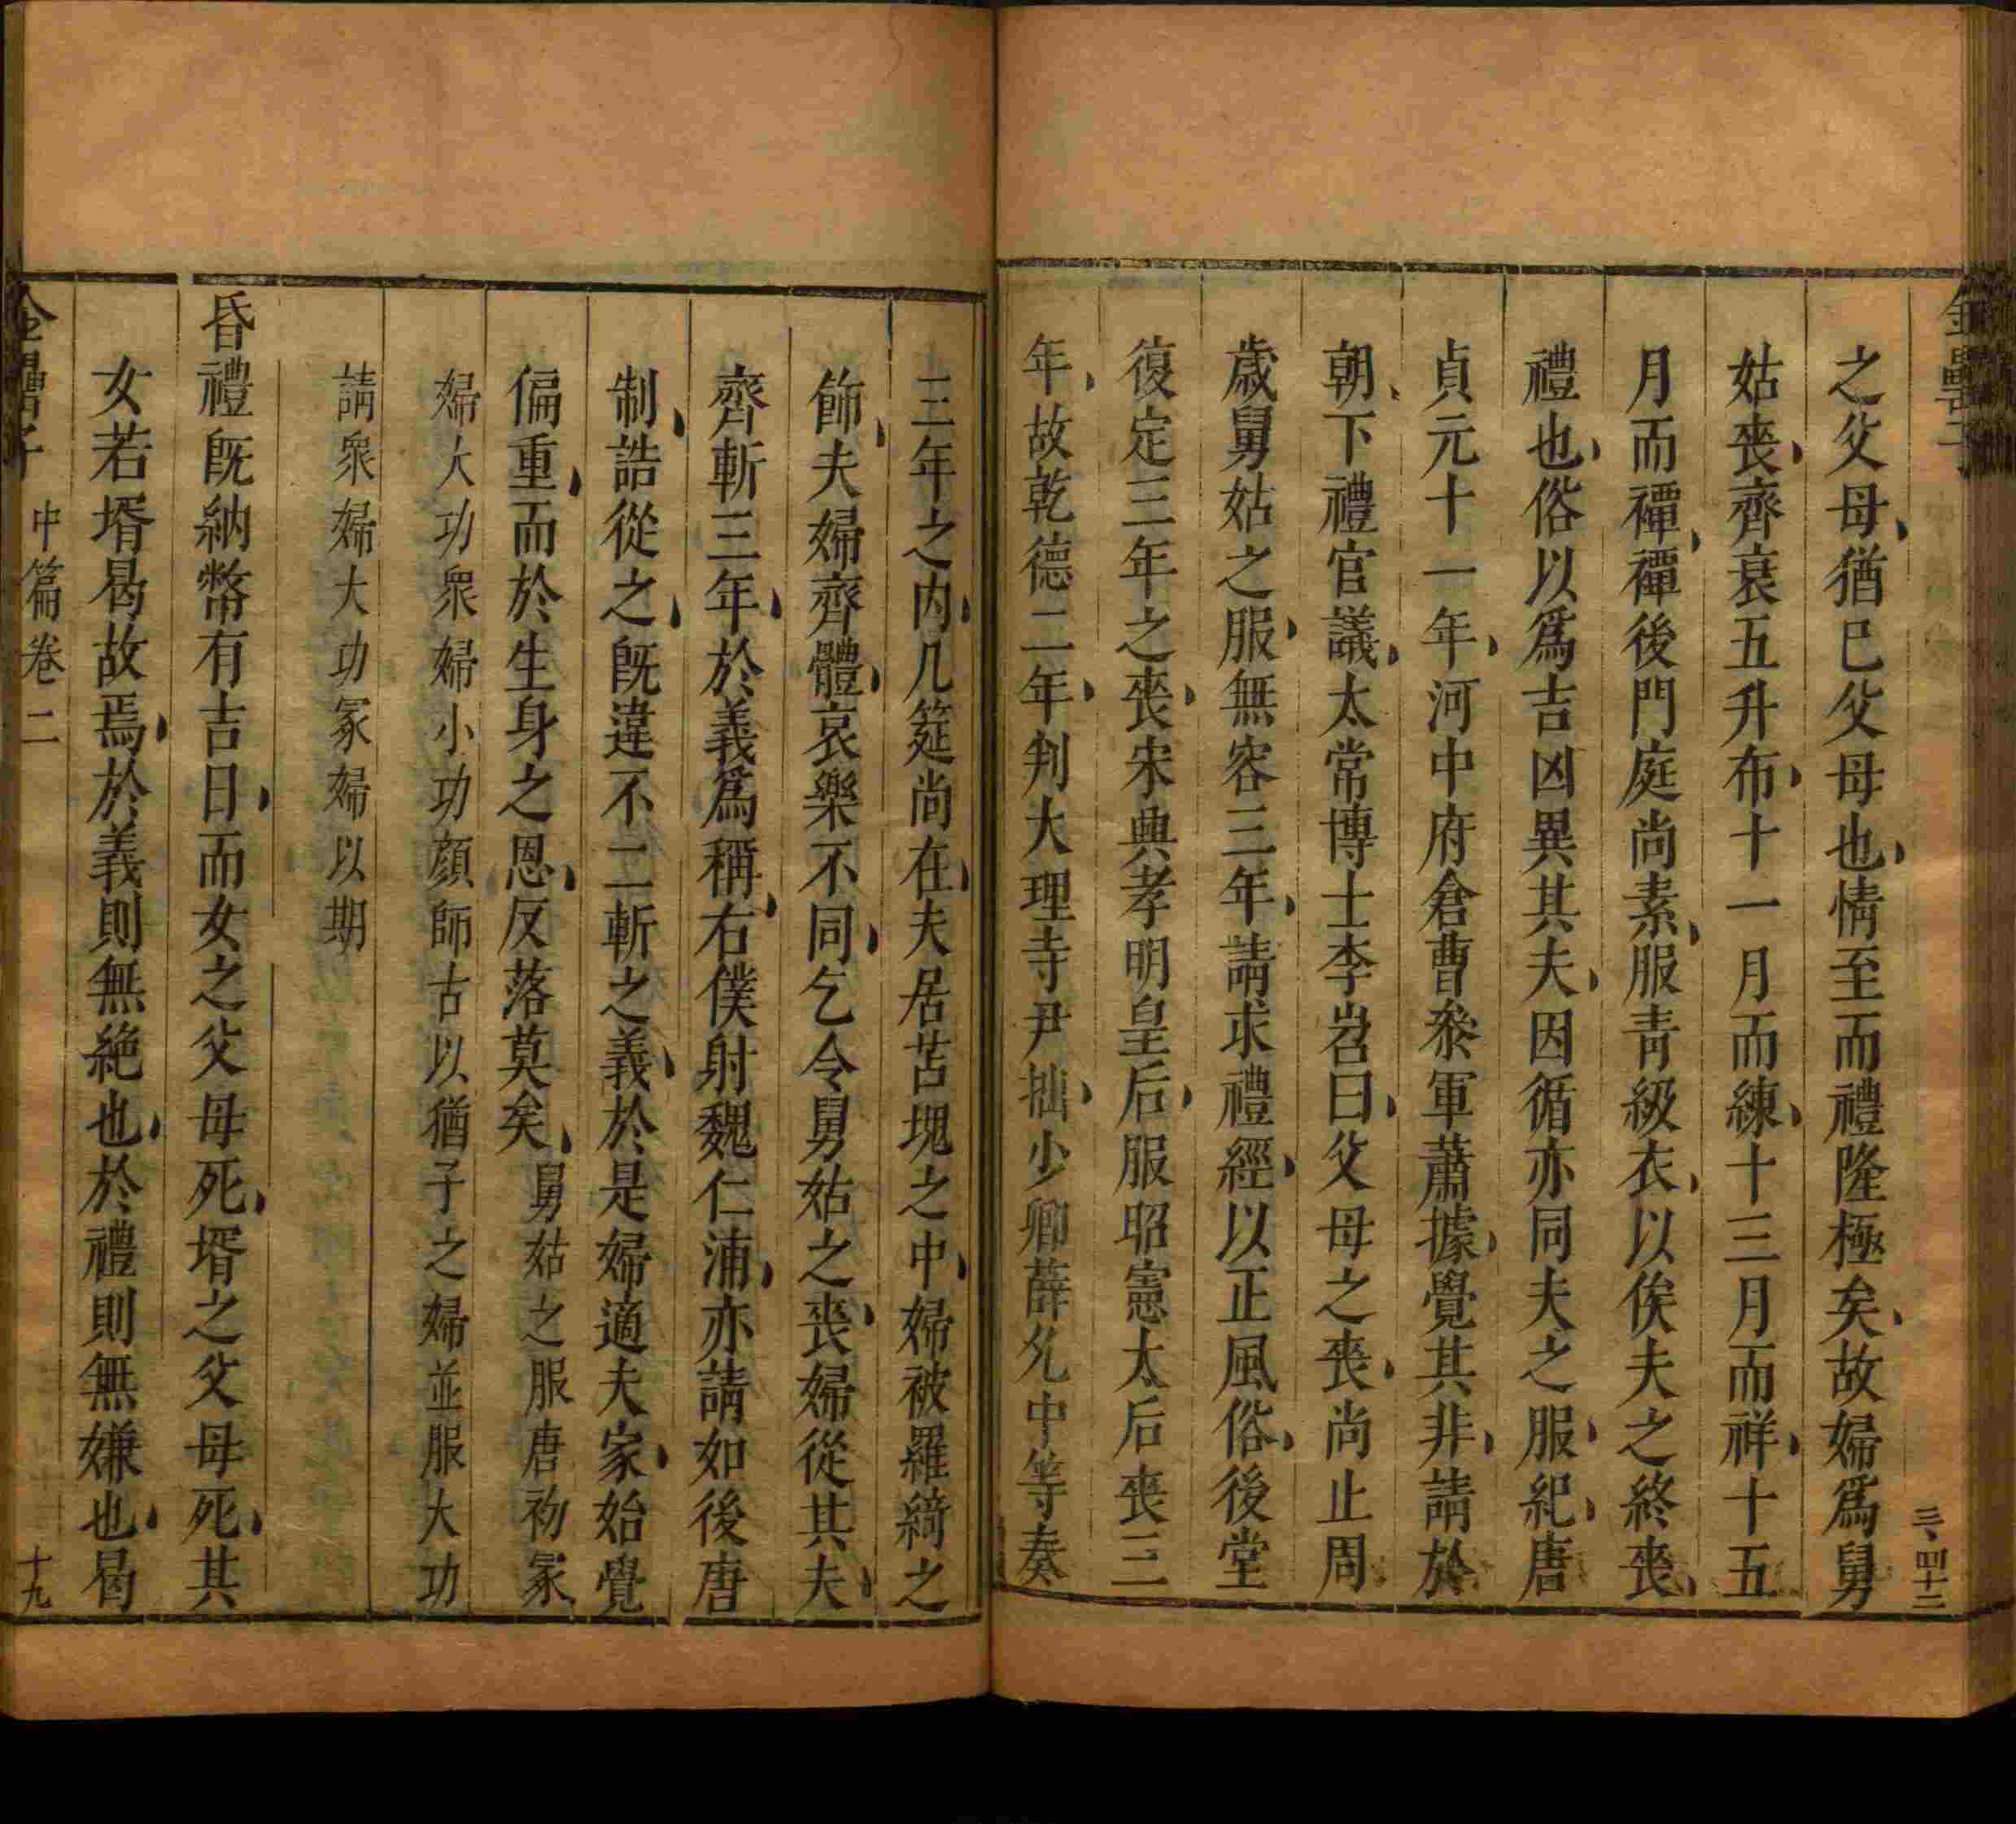 金罍子
三、四十三
之父母猶巳父母也情至而禮隆極矣故婦爲舅
姑喪齊衰五升布十一月而練十三月而祥十五
月而禫禫後門庭尚素服青縀衣以俟夫之終喪
禮也俗以爲吉凶異其夫因循亦同夫之服紀唐
貞元十一年河中府倉曹叅軍蕭據覺其非請於
朝下禮官議太常博士李岧曰父母之喪尚止周
歲舅姑之服無容三年請求禮經以正風俗後堂
復定三年之喪宋典孝明皇后服昭憲太后喪三
年故乾德二年判大理寺尹拙少卿薛允中等奏
三年之内几筵尚在夫居苫塊之中婦被羅綺之
飾夫婦齊體哀樂不同乞令舅姑之喪婦從其夫
齊斬三年於義爲稱右僕射魏仁浦亦請如後唐
制誥從之既違不二斬之義於是婦適夫家始覺
偏重而於生身之恩反落莫矣舅姑之服唐初冢
婦大功衆婦小功顔師古以猶子之婦並服大功
請衆婦大功冢婦以期
昏禮既納幣有吉日而女之父母死壻之父母死其
女若壻曷故焉於義則無絶也於禮則無嫌也曷
金罍子
中篇卷二
十九